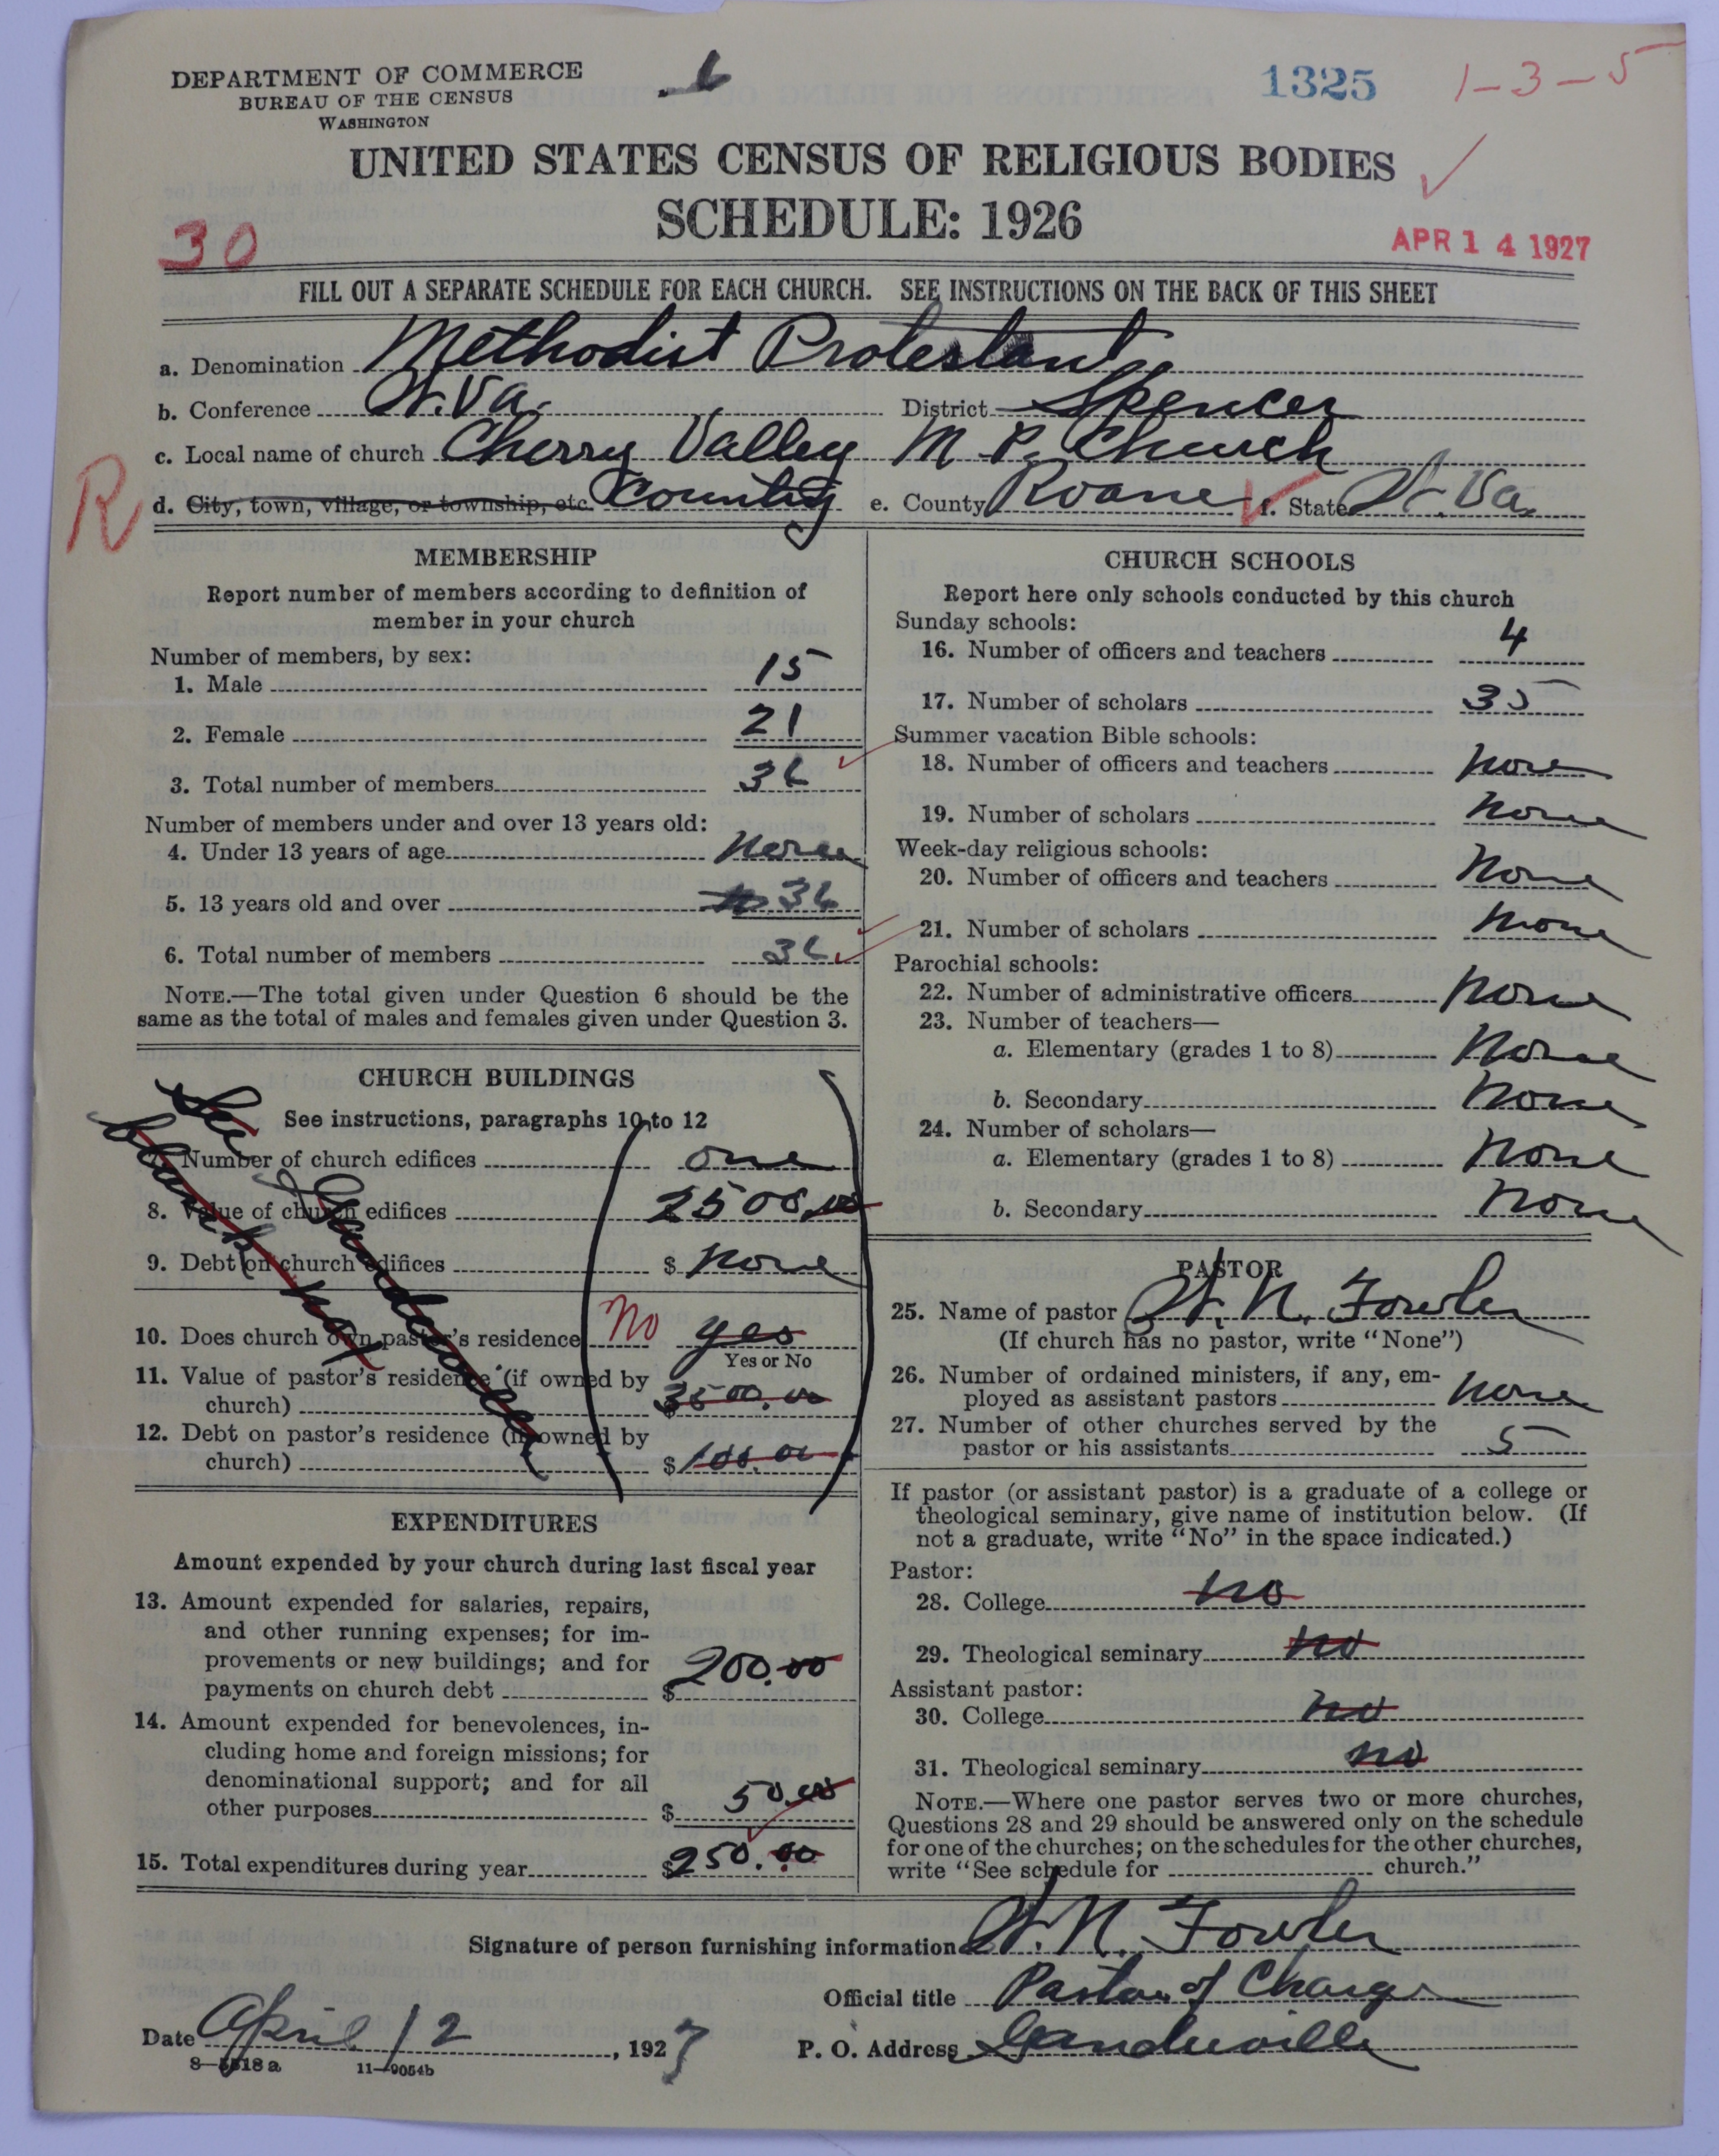 DEPARTMENT OF COMMERCE
BUREAU OF THE CENSUS
WASHINGTON
6
1325
1-3-5
UNITED STATES CENSUS OF RELIGIOUS BODIES
SCHEDULE: 1926
30
APR 14 1927
FILL OUT A SEPARATE SCHEDULE FOR EACH CHURCH. SEE INSTRUCTIONS ON THE BACK OF THIS SHEET
a. Denomination Methodist Protestant
b. Conference W. Va. District Spencer
c. Local name of church Cherry Valley M P. Church
R
d. City, town, village, or township, etc. Country e. County Roane f. State W. Va.
MEMBERSHIP
Report number of members according to definition of
member in your church
Number of members, by sex:
1. Male 15
2. Female 21
3. Total number of members 36
Number of members under and over 13 years old:
4. Under 13 years of age None
5. 13 years old and over 36
6. Total number of members 36
NOTE.—The total given under Question 6 should be the
same as the total of males and females given under Question 3.
CHURCH BUILDINGS
See instructions, paragraphs 10 to 12
7. Number of church edifices one
8. Value of church edifices 2500.00
9. Debt on church edifices $ None
10. Does church own pastor's residence No yes
Yes or No
11. Value of pastor's residence (if owned by
church) $ 3500.00
12. Debt on pastor's residence (if owned by
church) $ 100.00
See Gandeeville
blank no 1
EXPENDITURES
Amount expended by your church during last fiscal year
13. Amount expended for salaries, repairs,
and other running expenses; for im-
provements or new buildings; and for
payments on church debt $ 200.00
14. Amount expended for benevolences, in-
cluding home and foreign missions; for
denominational support; and for all
other purposes $ 50.00
15. Total expenditures during year $ 250.00
CHURCH SCHOOLS
Report here only schools conducted by this church
Sunday schools:
16. Number of officers and teachers 4
17. Number of scholars 35
Summer vacation Bible schools:
18. Number of officers and teachers None
19. Number of scholars None
Week-day religious schools:
20. Number of officers and teachers None
21. Number of scholars None
Parochial schools:
22. Number of administrative officers None
23. Number of teachers—
a. Elementary (grades 1 to 8) None
b. Secondary None
24. Number of scholars—
a. Elementary (grades 1 to 8) None
b. Secondary None
PASTOR
25. Name of pastor W. N. Fowler
(If church has no pastor, write "None")
26. Number of ordained ministers, if any, em-
ployed as assistant pastors None
27. Number of other churches served by the
pastor or his assistants 5
If pastor (or assistant pastor) is a graduate of a college or
theological seminary, give name of institution below. (If
not a graduate, write "No" in the space indicated.)
Pastor:
28. College no
29. Theological seminary no
Assistant pastor:
30. College no
31. Theological seminary no
NOTE.—Where one pastor serves two or more churches,
Questions 28 and 29 should be answered only on the schedule
for one of the churches; on the schedules for the other churches,
write "See schedule for church."
Signature of person furnishing information W. N. Fowler
Official title Pastor of Charge
Date April 12, 1927 P. O. Address Gandeeville
8—5518a 11—9054b